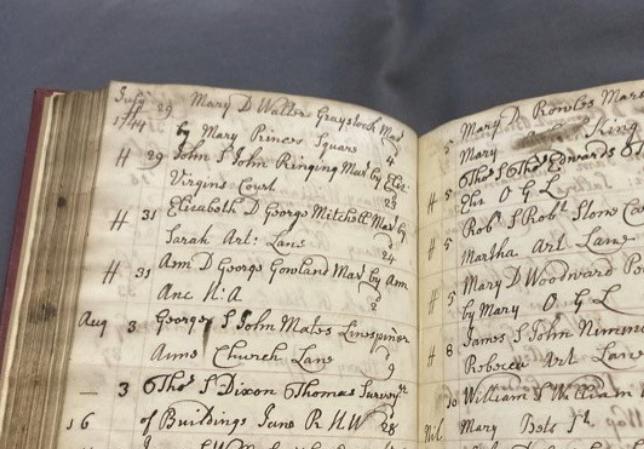 July 29 Mary D Walter Graystock Mar
1744 by Mary Princes Square 4
H 29 John S John Ringing Mar by Eliz:
Virgins Court 23
H 31 Elizabeth D George Mitchell Mar by
Sarah Art: Lane 24
H 31 Ann D George Gowland Mar by Ann
Anc H: A 2
Aug 3 George S John Mates Linespinner
Anne Church Lane 9
— 3 Thos S Dixon Thomas Survyr
16 of Buildings Jane R H W 28
5 Mary D Rowles Mar
Mary King
H 5 Thos S Thos Edwards
Eliz O G L
H 5 Robt S Robt Stone
Martha Art Lane
H 5 Mary D Woodward
by Mary O G L
H 8 James S John
Rebecca Art Lane
10 William S William
Nil Mary